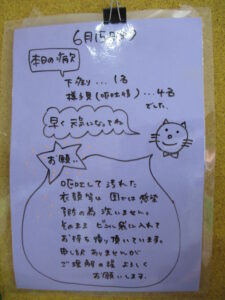 6月15日(火)
本日の病欠
下痢り … 1名
様子見(嘔吐情) … 4名
でした。
早く元気になってね
お願い。
嘔吐して汚れた
衣類等は 園では感染
予防の為 洗いません。
そのまま ビニール袋に入れて
お持ち帰り頂いています。
申し訳ありませんが
ご理解の程 よろしく
お願いします。